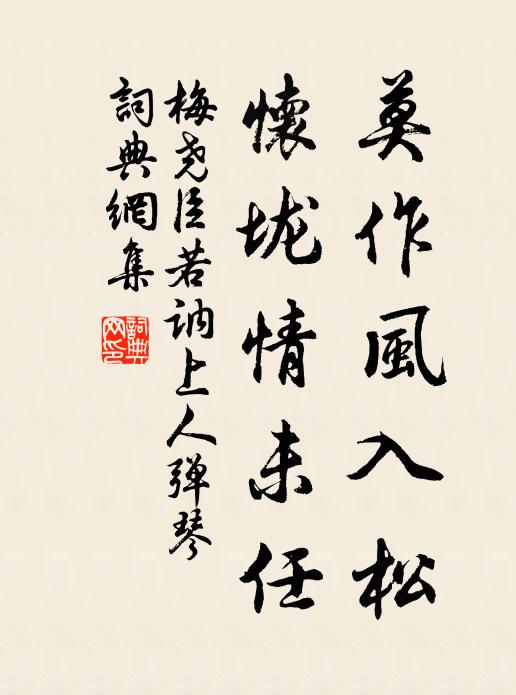 莫作風入松
懷垅情未任
梅尧臣若訥上人弹琴
詞典網集
詞典
网印